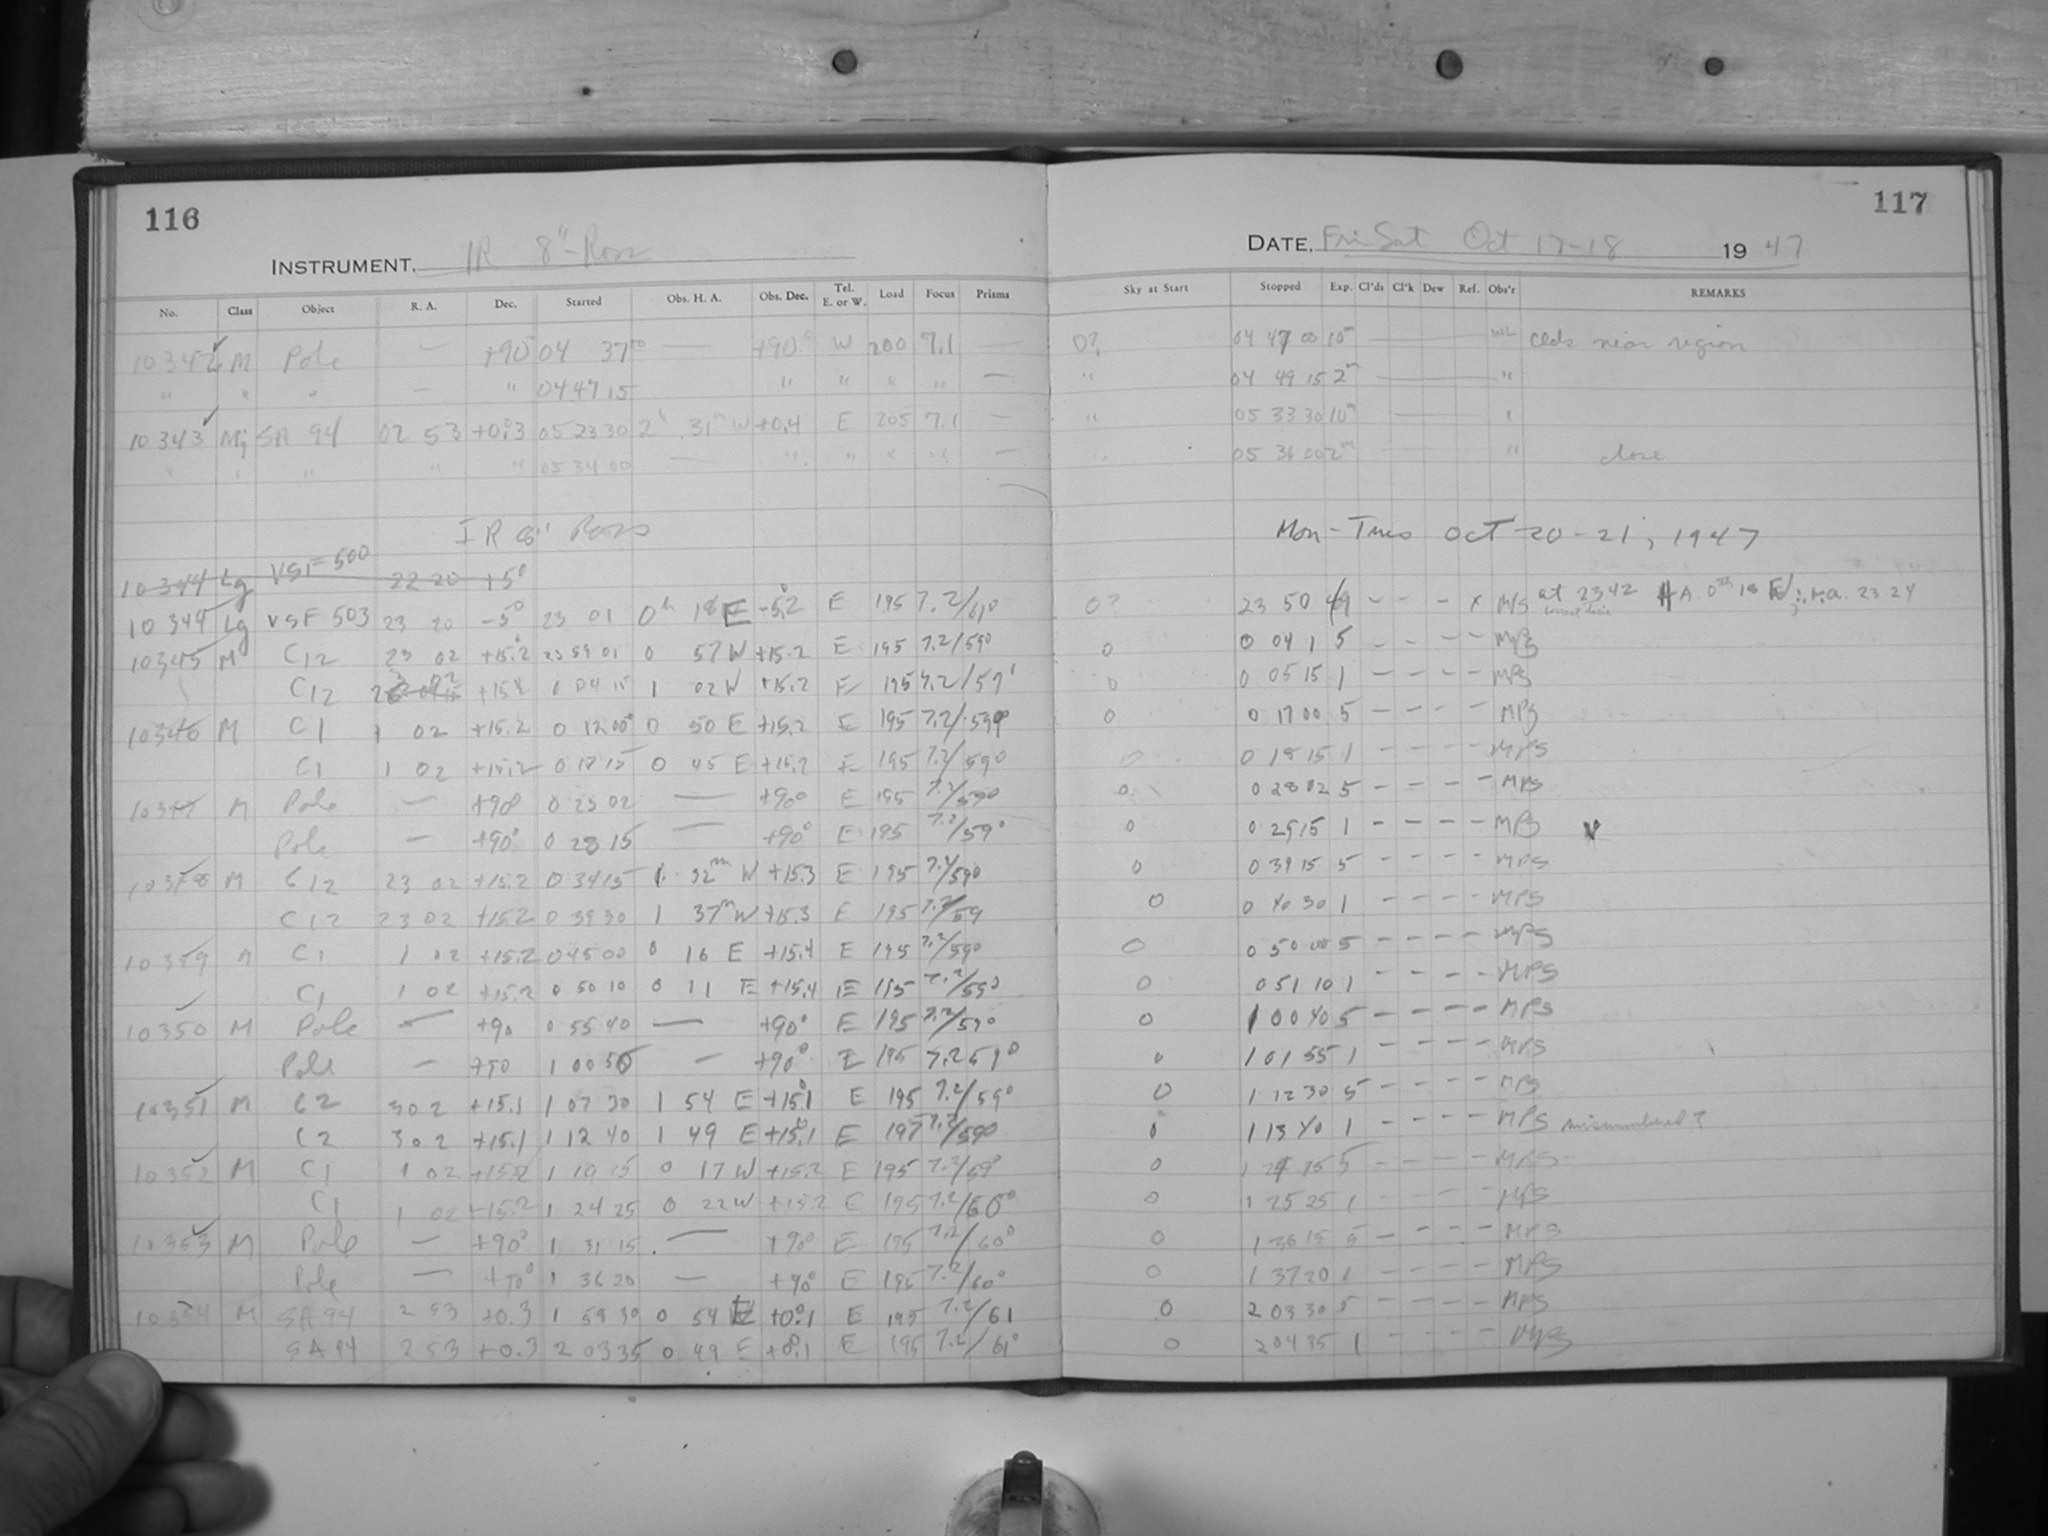 116
INSTRUMENT, IR 8"-Ross
No. Class Object R. A. Dec. Started Obs. H. A. Obs. Dec. Tel. E. or W. Load Focus Prisms
10342 M Pole — +90° 04 37 — +90° W 200 7.1 —
" " " — " 04 47 15 " " " " —
10343 SA 94 02 53 +0.3 05 23 30 2h 31m W +0.4 E 205 7.1 —
" " " " " 05 34 00 — " " " " —
IR 8" Ross
10344 Lg VSF 500 22 20 +5°
10344 Lg VSF 503 23 20 -5° 23 01 0h 18 E -5.2 E 195 7.2/61°
10345 M C12 23 02 +15.2 23 59 01 0 57 W +15.2 E 195 7.2/59°
C12 +15.2 0 04 15 1 02 W +15.2 E 195 7.2/59°
10346 M C1 1 02 +15.2 0 12 00 0 50 E +15.2 E 195 7.2/59°
C1 1 02 +15.2 0 45 E +15.2 E 195 7.2/59°
10347 M Pole — +90 0 23 02 — +90° E 195 7.2/59°
Pole — +90° 0 28 15 — +90° E 195 7.2/59°
10348 M C12 23 02 +15.2 0 34 15 1 32m W +15.3 E 195 7.2/59°
C12 23 02 +15.2 0 39 30 1 37m W +15.3 E 195 7.2/59
10349 M C1 1 02 +15.2 0 45 00 0 16 E +15.4 E 195 7.2/59°
C1 1 02 +15.2 0 50 10 0 11 E +15.4 E 195 7.2/59°
10350 M Pole — +90 0 55 40 — +90° E 195 7.2/59°
Pole — +90 1 00 55 — +90° E 195 7.2 59°
10351 M C2 3 02 +15.1 1 07 30 1 54 E +15.1 E 195 7.2/59°
C2 3 02 +15.1 1 12 40 1 49 E +15.1 E 195 7.2/59°
10352 M C1 1 02 +15.2 1 19 15 0 17 W +15.2 E 195 7.2/59°
C1 1 02 +15.2 1 24 25 0 22 W +15.2 E 195 7.2/60°
10353 M Pole — +90° 1 31 15 — +90° E 195 7.2/60°
Pole — +90° 1 36 20 — +90° E 195 7.2/60°
10354 M SA 94 2 53 +0.3 1 58 30 0 54 E +0.1 E 195 7.2/61
SA 94 2 53 +0.3 2 03 35 0 49 E +0.1 E 195 7.2/61°
117
DATE, Fri-Sat Oct 17-18 19 47
Sky at Start Stopped Exp. Cl'ds Cl'k Dew Ref. Obs'r REMARKS
0? 04 47 00 10m WL clds near region
" 04 49 15 2m "
" 05 33 30 10m "
" 05 36 00 2m " close
Mon-Tues Oct 20-21, 1947
0? 23 50 49 - - - x MPS at 2342 H.A. 0h 18 E ∴ r.a. 23 24
0 0 04 1 5 - - - MPS
0 0 05 15 1 - - - - MPS
0 0 17 00 5 - - - - MPS
0 0 18 15 1 - - - - MPS
0 0 28 02 5 - - - - MPS
0 0 29 15 1 - - - - MPS v
0 0 39 15 5 - - - - MPS
0 0 40 30 1 - - - - MPS
0 0 50 00 5 - - - - MPS
0 0 51 10 1 - - - - MPS
0 1 00 40 5 - - - - MPS
0 1 01 55 1 - - - - MPS
0 1 12 30 5 - - - - MPS
0 1 13 40 1 - - - - MPS misnumbered?
0 1 24 15 5 - - - - MPS
0 1 25 25 1 - - - - MPS
0 1 36 15 5 - - - - MPS
0 1 37 20 1 - - - - MPS
0 2 03 30 5 - - - - MPS
0 2 04 35 1 - - - - MPS